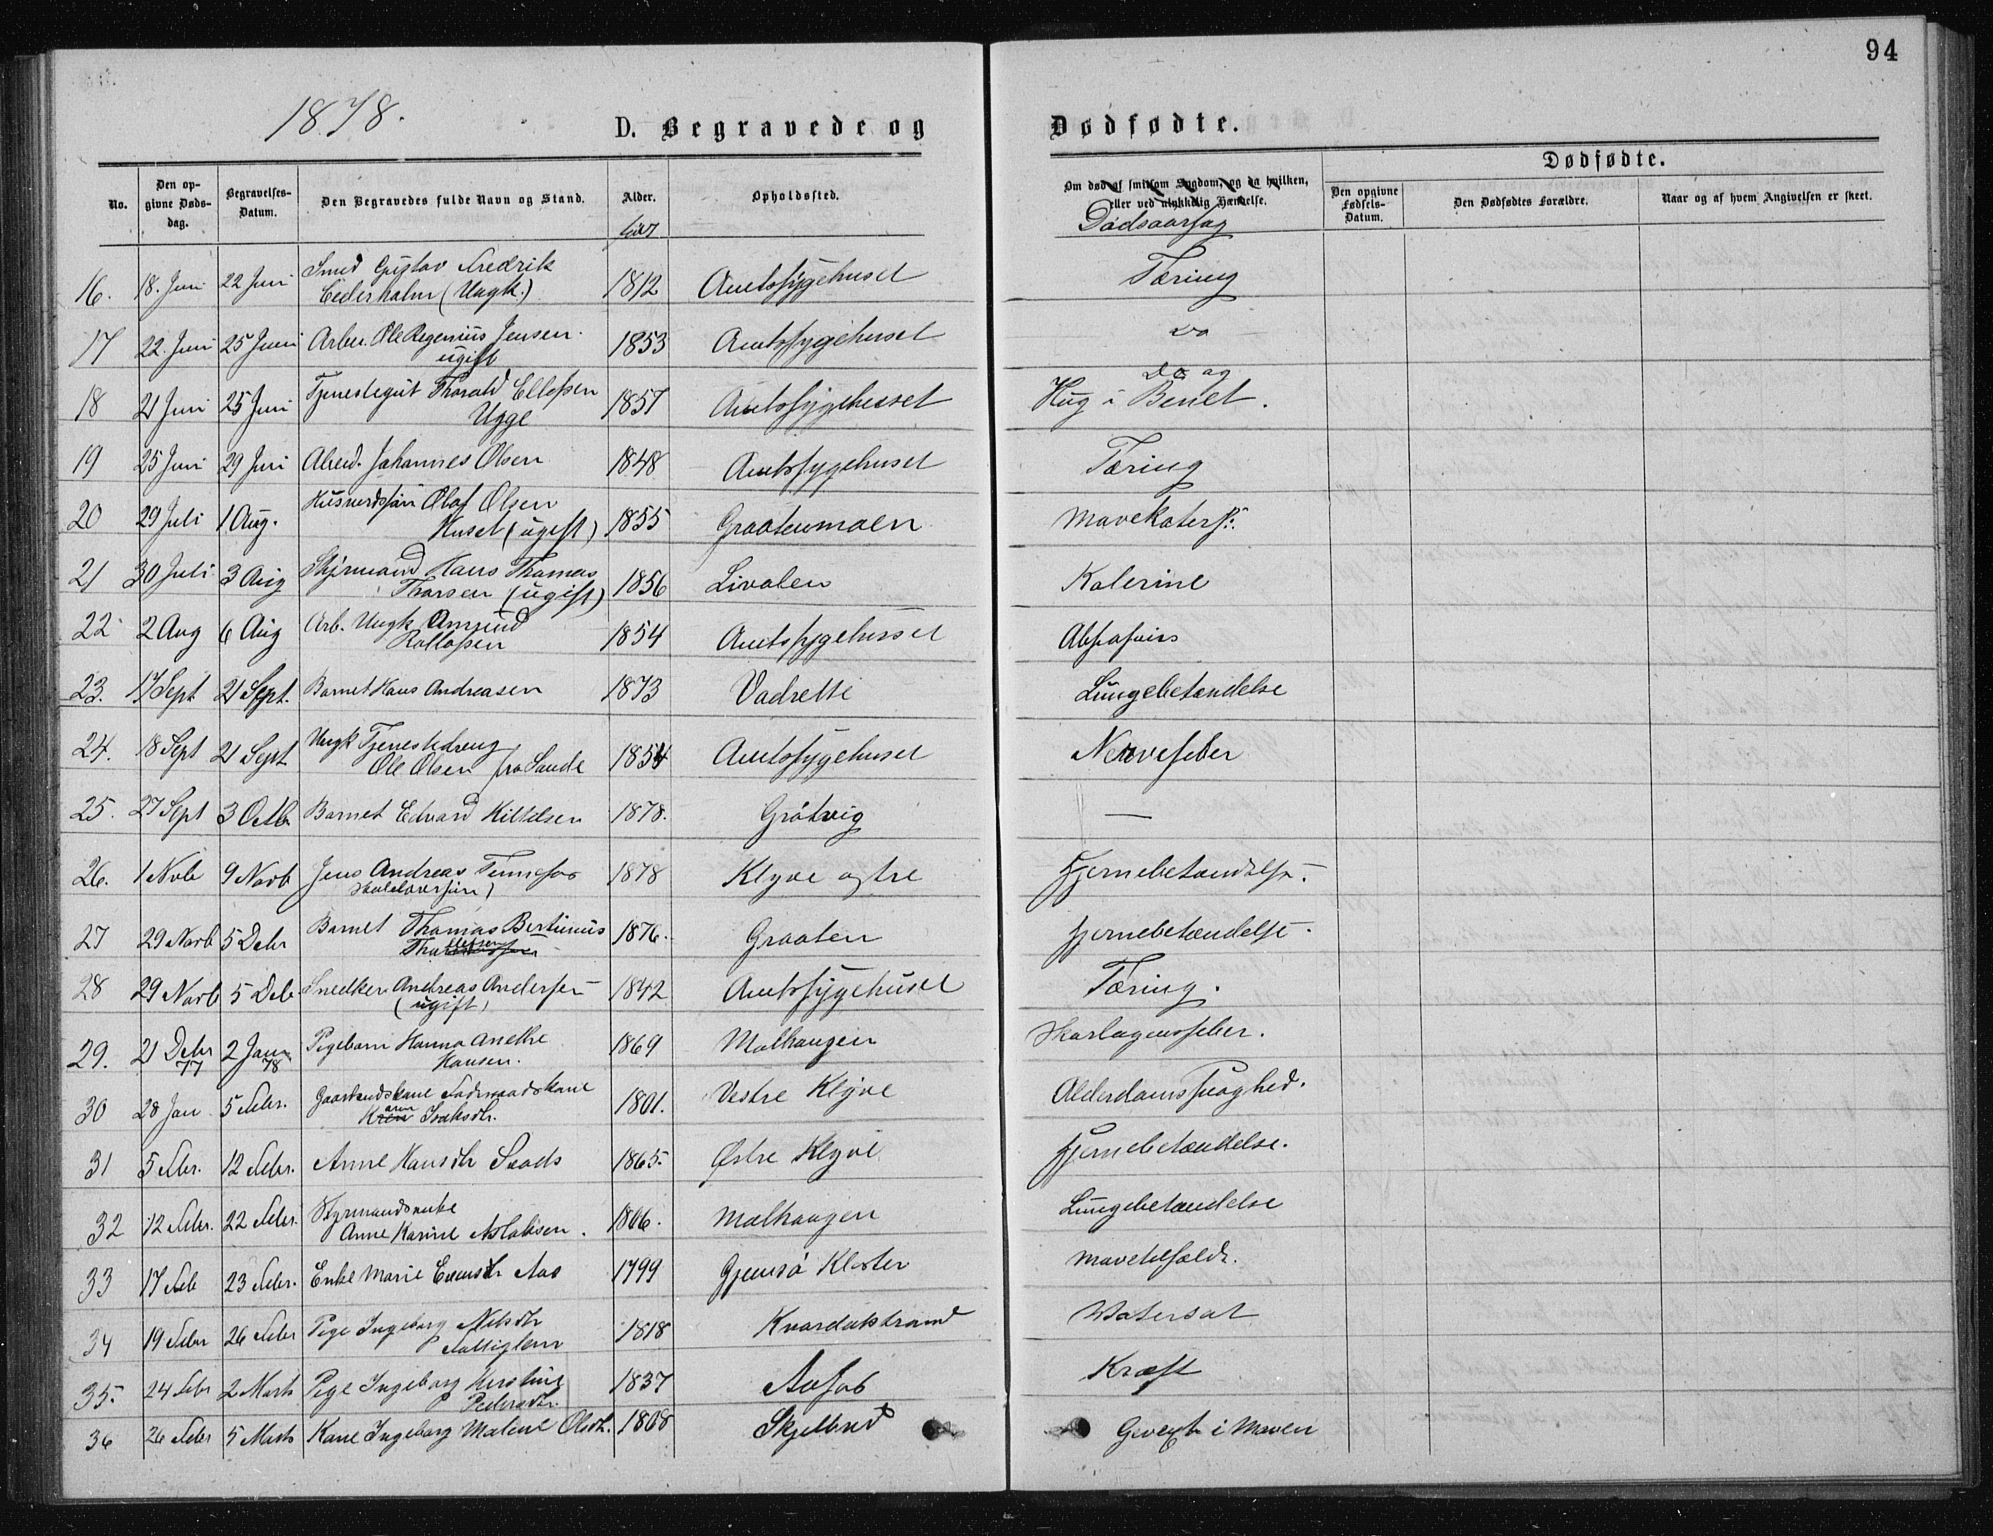 94
1878.
D. Begravede og Dødfødte.
No. Den opgivne Dødsdag. Begravelses-Datum. Den Begravedes fulde Navn og Stand. Alder. Opholdssted. Om død af smitsom Sygdom, og da hvilken, eller ved ulykkelig Hændelse. Dødfødte. Den opgivne Fødsels-Datum. Den Dødfødtes Forældre. Naar og af hvem Angivelsen er skeet.
Dødsaarsag
16. 18. Juni 22 Juni Smed Gustav Fredrik
Cederholm (Ungk.) 1812 Amtssygehuset Tæring
17 22. Juni 25 Juni Arber. Ole Regenius Jensen.
ugift 1853 Amtssygehuset do
18 21 Juni 25 Juni Tjenestegut Thorald Ellefsen
Ugge 1857 Amtssygehuset Do og
Hug i Benet.
19 25 Juni 29 Juni Johannes Olsen 1848 Amtssygehuset Tæring
20 29 Juli 1 Aug. Olaf Olsen
Huset (ugift) 1855 Graatenmoen
21 30 Juli 3 Aug Styrmand Hans Thomas
Thorsen (ugift) 1856 Kolerine
22 2 Aug 6 Aug Arb. Ungk Amund
Rollofsen 1854 Amtssygehuset
23. 17 Sept 21 Sept. Barnet Hans Andreasen 1873 Vadrette Lungebetændelse
24. 18 Sept 21 Sept Ungk Tjenestedreng
Ole Olsen fra Sande 1854 Amtssygehuset Nervefeber
25. 27 Sept 3 Octb. Barnet Edvard Kittelsen 1878. Grøtvig —
26. 1 Novb 9 Novb Jens Andreas Tinnefos
1878 Klyve østre Hjernebetændelse.
27 29 Novb 5 Debr Barnet Thomas Bertinius
1876. Graaten Hjernebetændelse.
28 29 Novb 5 Deb Snedker Andreas Andersen
(ugift) 1842 Amtssygehuset Tæring.
29. 21 Debr 77 2 Janu 78 Pigebarn Hanna Anethe
Hansen. 1869 Molhaugen Skarlagensfeber.
30 28 Jan 5 Febr. Gaardmandskone
Karen Isaksdtr. 1801. Vestre Klyve Alderdomssvaghed.
31 5 Febr. 12 Febr. Anne Hansdtr 1865. Østre Klyve Hjernebetændelse.
32 12 Febr. 22 Febr. Styrmandsenke
Anne Karine Aslaksen. 1806. Molhaugen Lungebetændelse
33 17 Feb 23 Febr. Enke Marie Evensdtr Aas 1799 Gjemsø Kloster Mavetilfælde.
34 19 Febr 26 Febr Pige Ingeborg Nilsdtr
Fattiglem 1818 Watersot
35. 24 Febr 2 Marts Pige Ingeborg Kirstine
Pedersdtr. 1837 Aafos Kræft
36 26 Febr 5 Marts Kone Ingeborg Malene Olsdtr. 1808 Skjelbred Gevext i Maven